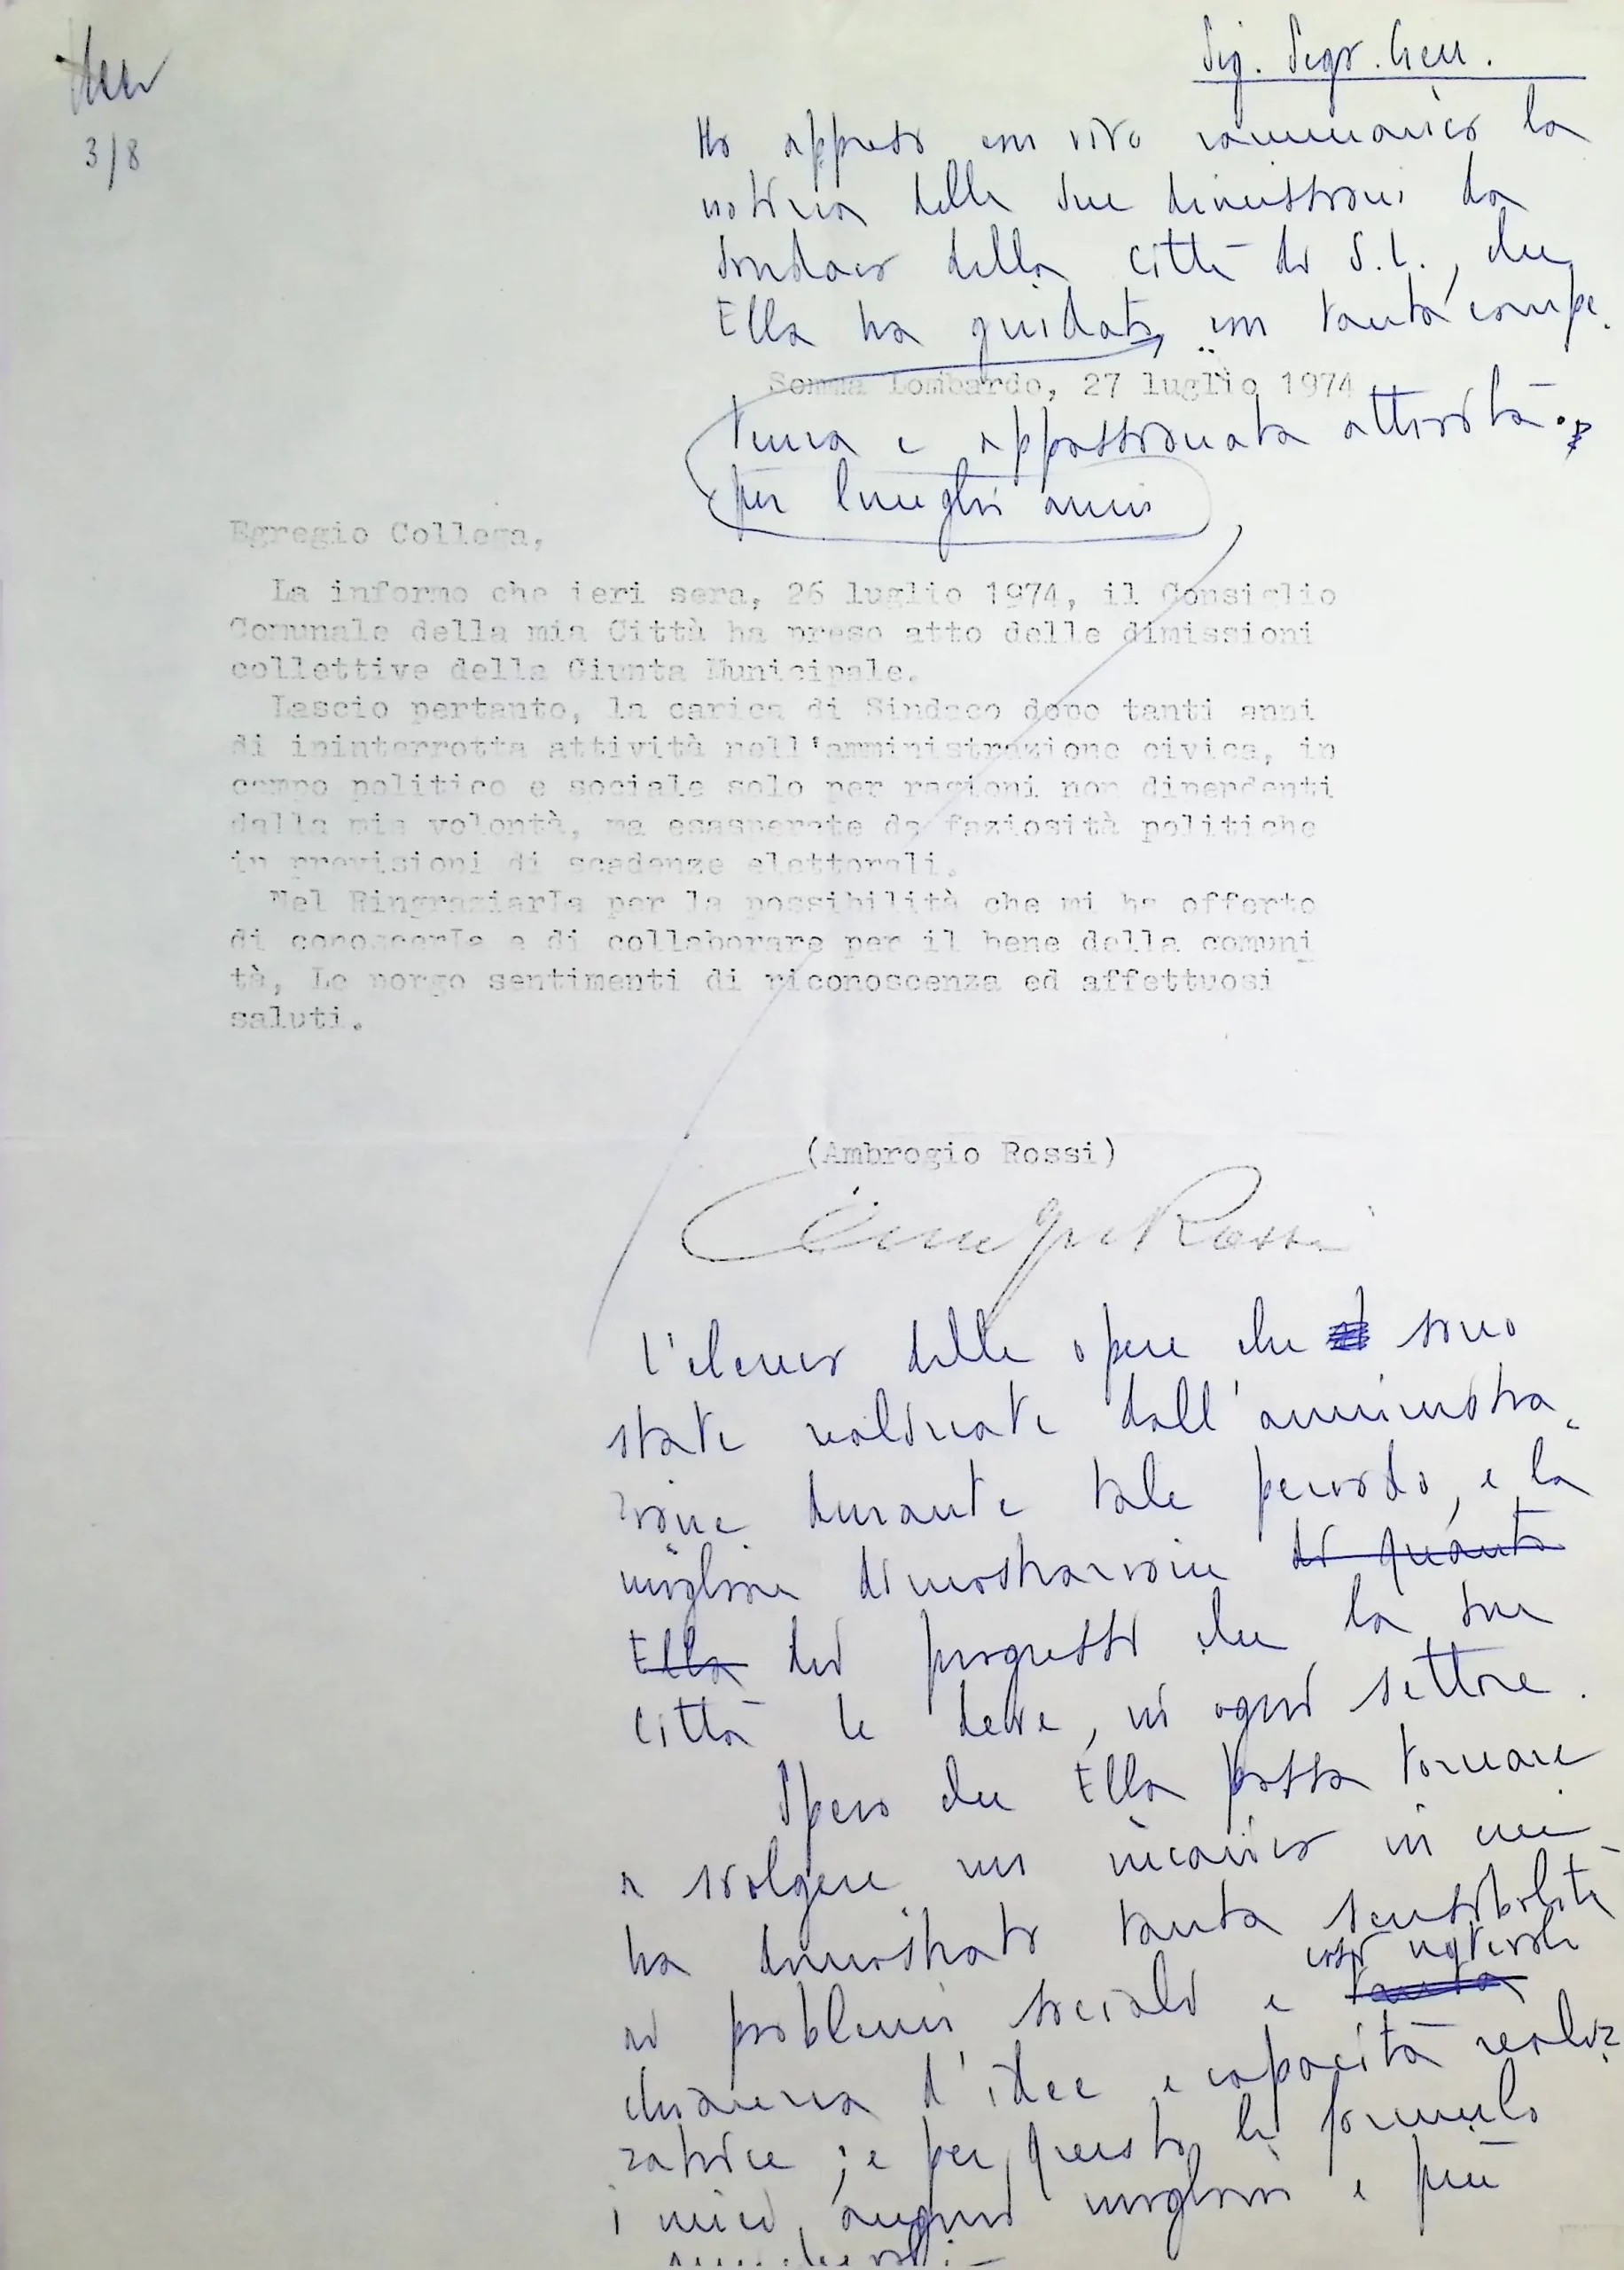 3/8
Sig. Segr. Gen.
Ho appreso con vivo rammarico la
notizia delle Sue dimissioni da
Sindaco della Città di S.L., che
Ella ha guidato con tanta compe
Somma Lombardo, 27 luglio 1974
tenza e appassionata attività.
per lunghi anni
Egregio Collega,
La informo che ieri sera, 26 luglio 1974, il Consiglio
Comunale della mia Città ha preso atto delle dimissioni
collettive della Giunta Municipale.
Lascio pertanto, la carica di Sindaco dopo tanti anni
di ininterrotta attività nell'amministrazione civica, in
campo politico e sociale solo per ragioni non dipendenti
dalla mia volontà, ma esasperate da faziosità politiche
in previsioni di scadenze elettorali.
Nel RingraziarLa per la possibilità che mi ha offerto
di conoscerLa e di collaborare per il bene della comuni
tà, Le porgo sentimenti di riconoscenza ed affettuosi
saluti.
(Ambrogio Rossi)
Ambrogio Rossi
L'elenco delle opere che sono
state realizzate dall'amministra
zione durante tale periodo, è la
migliore dimostrazione di quanto
Ella dei progressi che la sua
Città le deve, in ogni settore.
Spero che Ella possa tornare
a svolgere un incarico in cui
ha dimostrato tanta sensibilità
così notevole
ai problemi sociali e tanta
chiarezza d'idee e capacità realiz
zatrice; e per questo le formulo
i miei auguri migliori e più